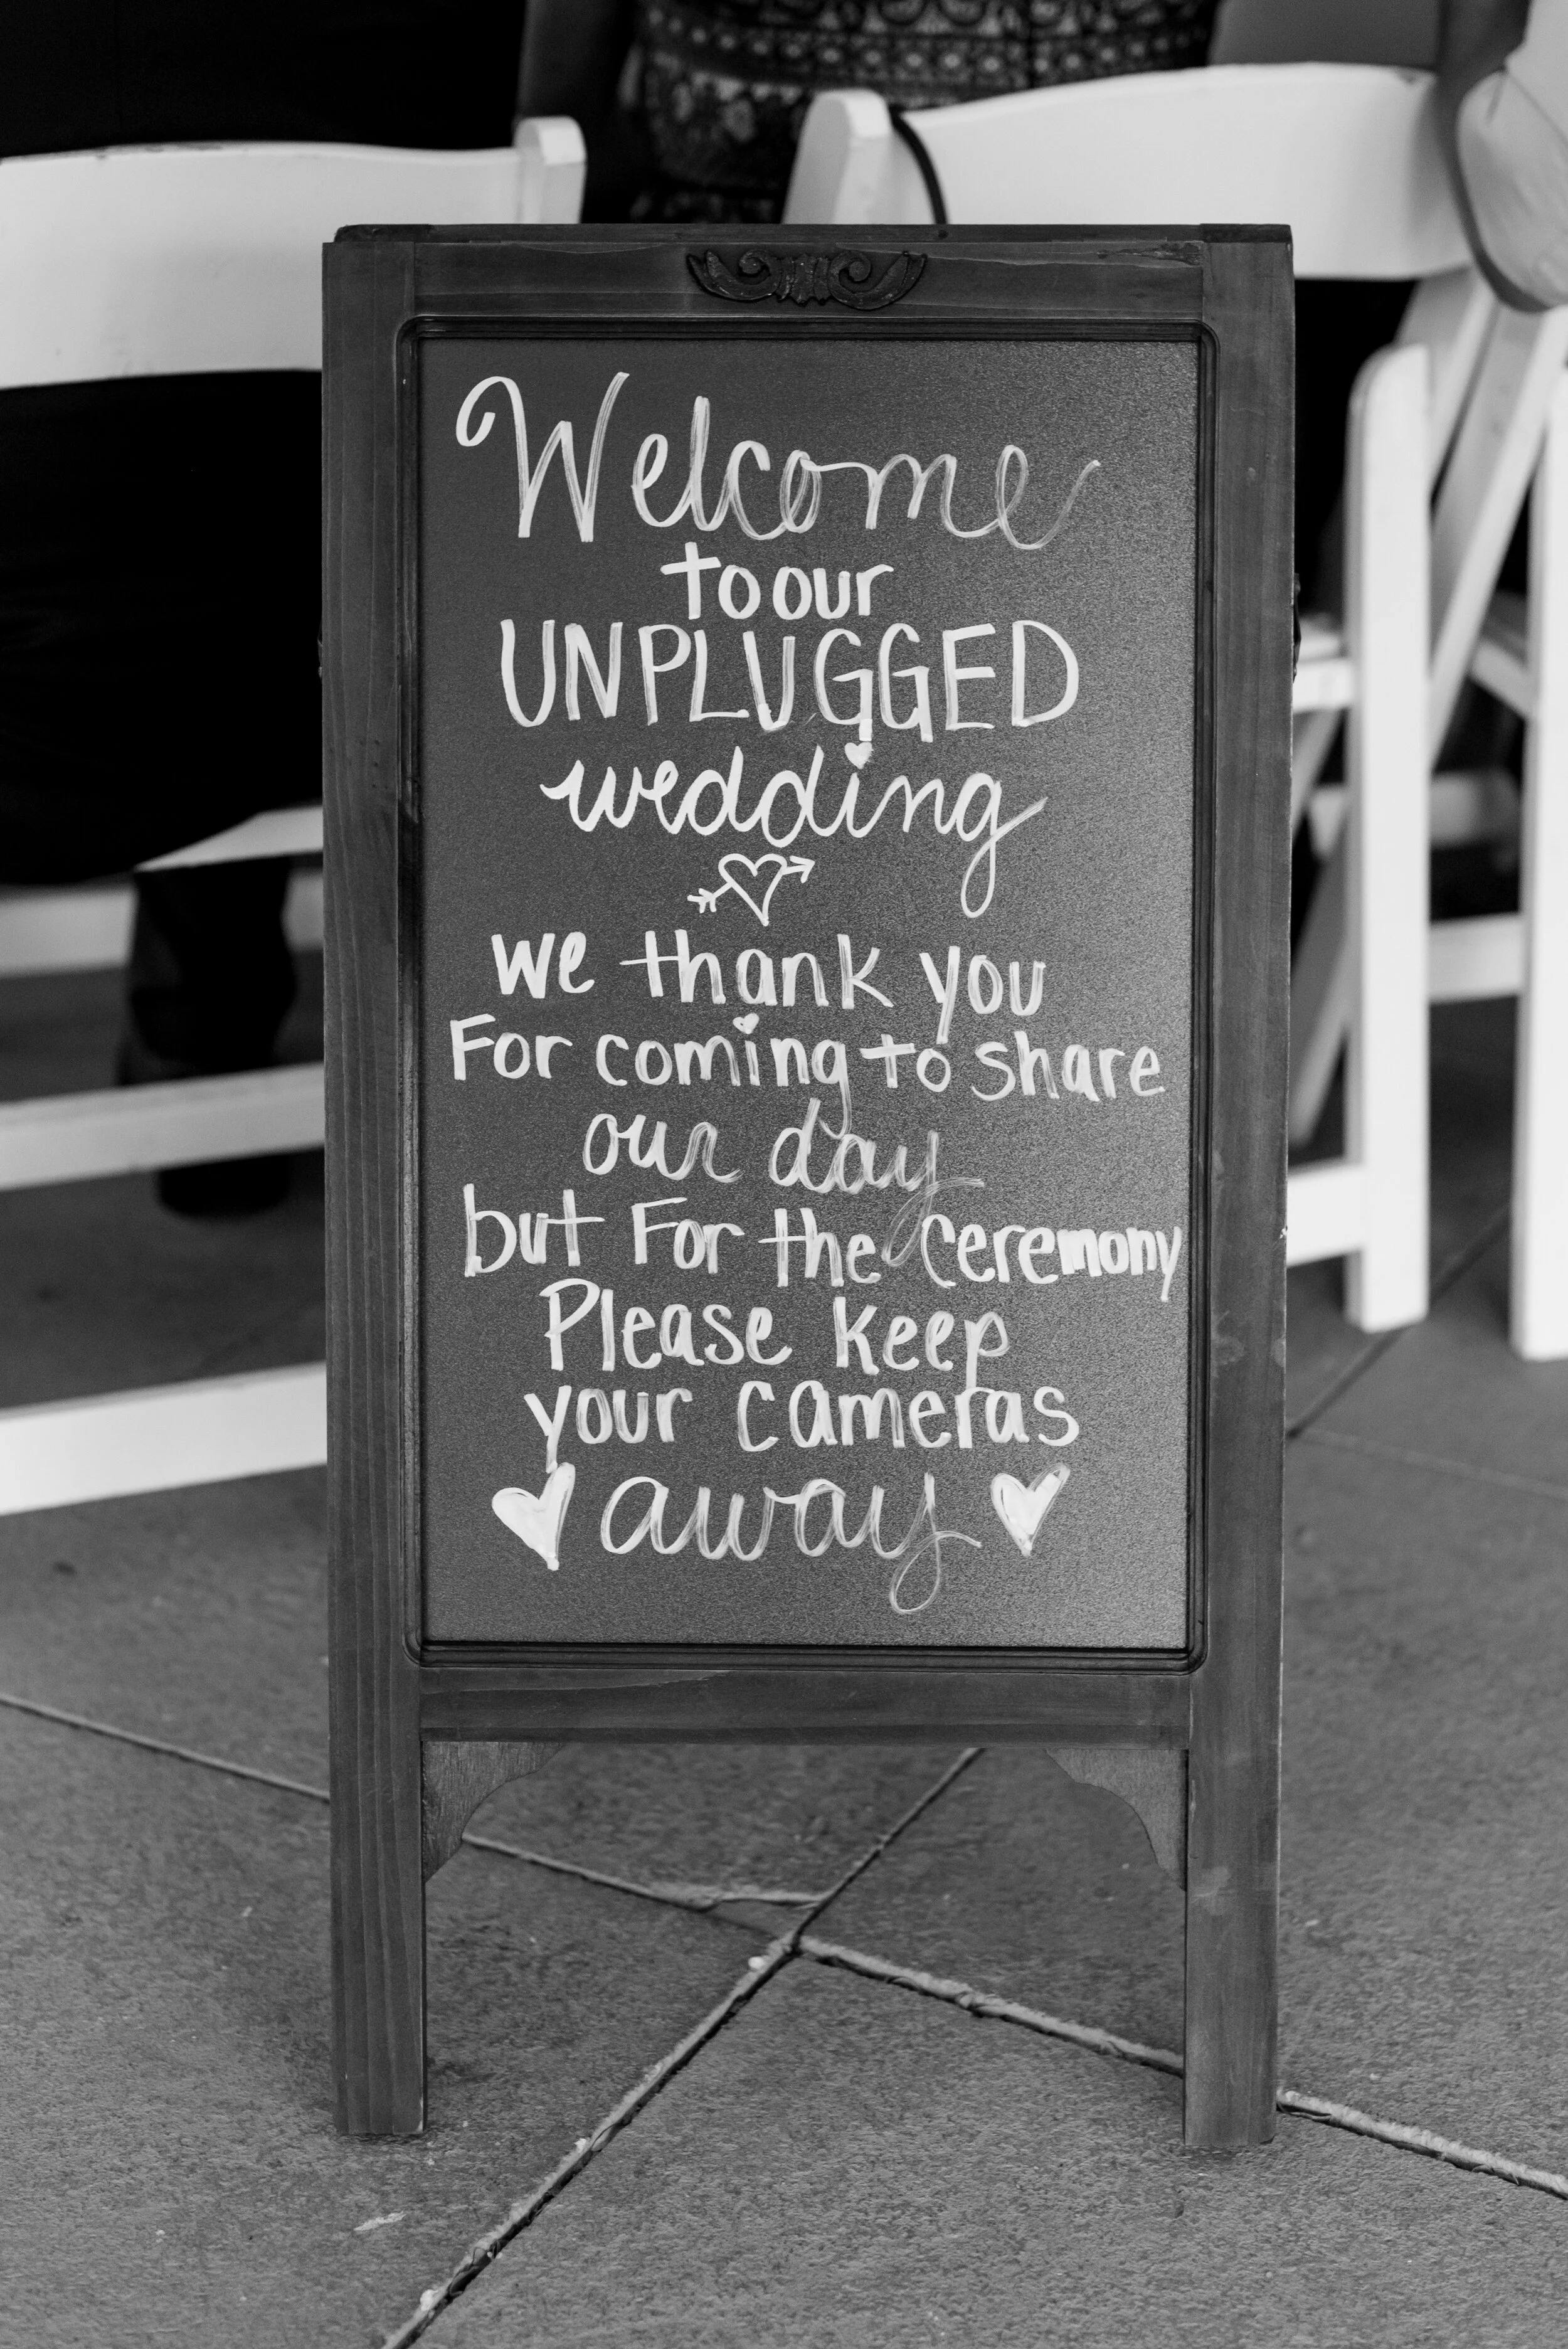 Welcome
to our
UNPLUGGED
wedding
we thank you
For coming to share
our day
but For the ceremony
Please keep
your cameras
away